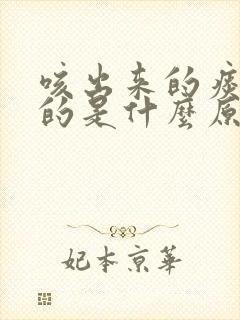 咳出来的痰
的是什麼原
妃本京華